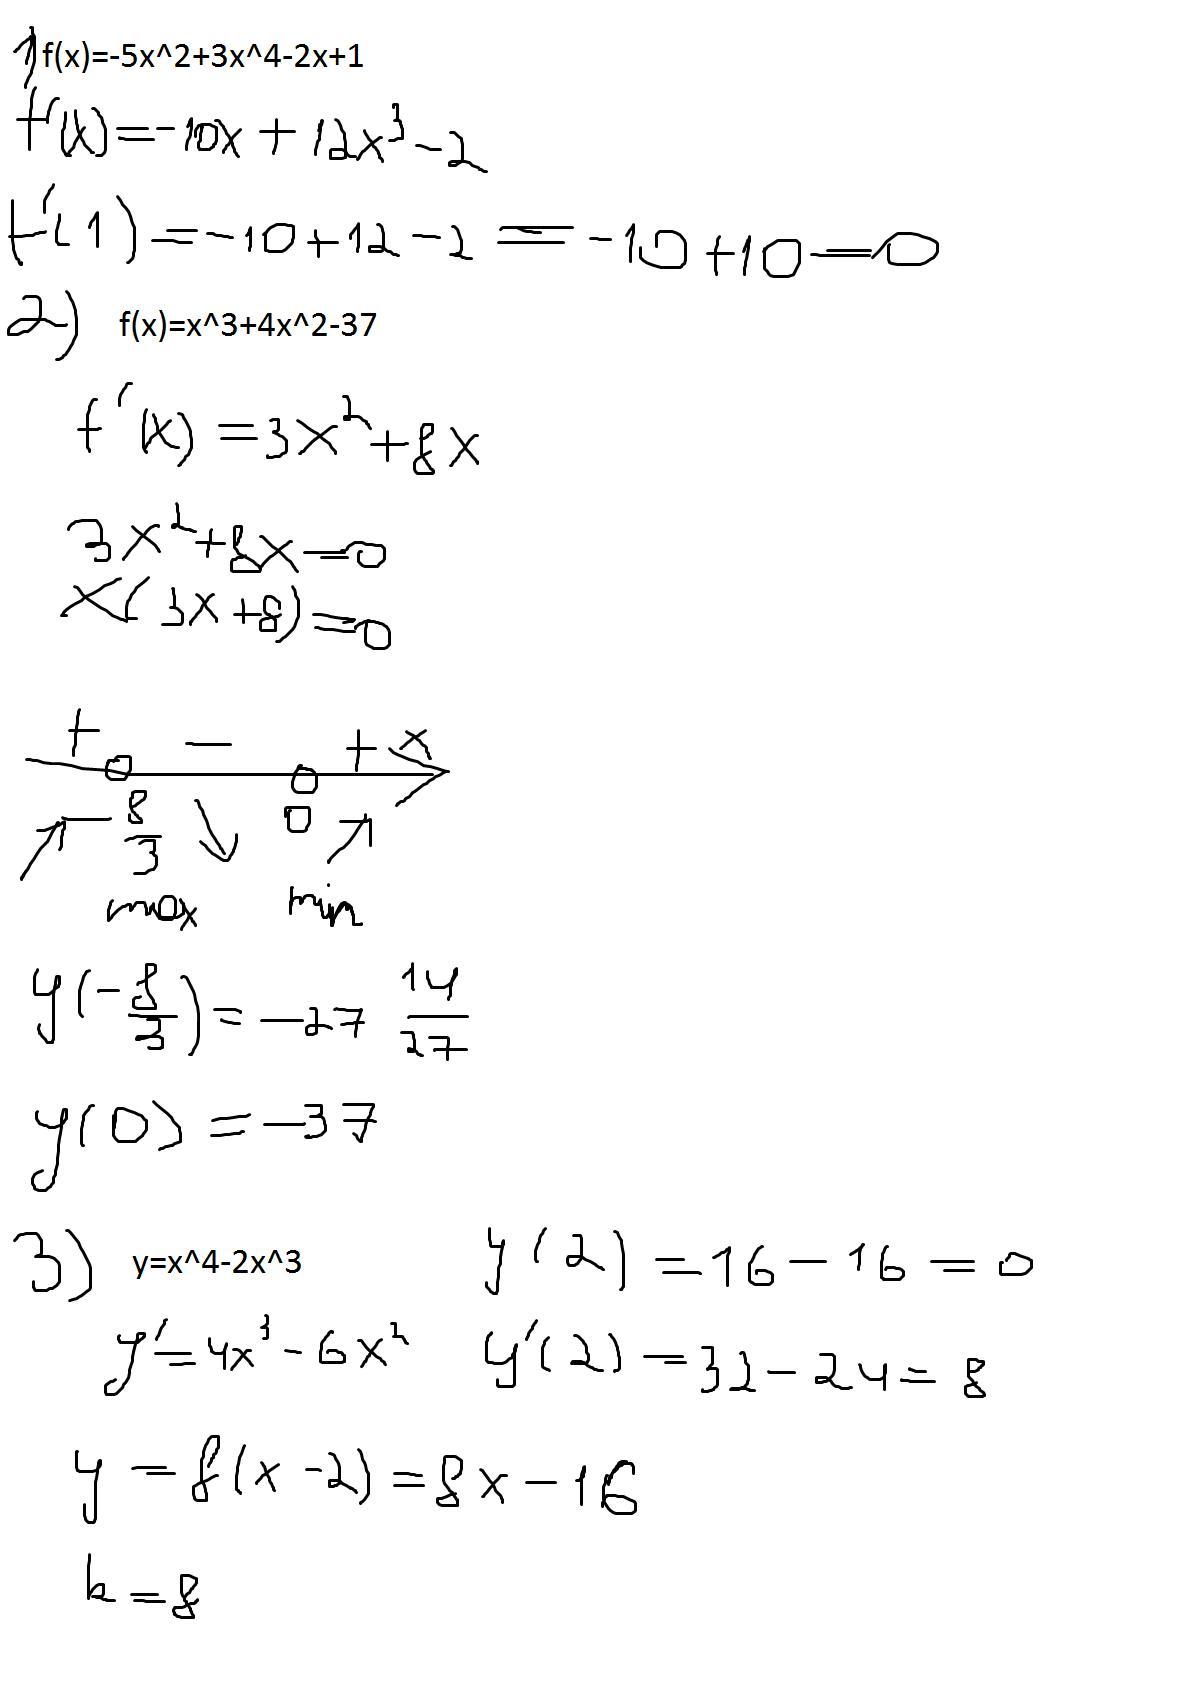 1) f(x)=-5x^2+3x^4-2x+1
f'(x)=-10x+12x³-2
f'(1)=-10+12-2=-10+10=0
2) f(x)=x^3+4x^2-37
f'(x)=3x²+8x
3x²+8x=0
x(3x+8)=0
+ - + x
-8/3 0
max min
y(-8/3)=-27 14/27
y(0)=-37
3) y=x^4-2x^3 y(2)=16-16=0
y'=4x³-6x² y'(2)=32-24=8
y=8(x-2)=8x-16
k=8